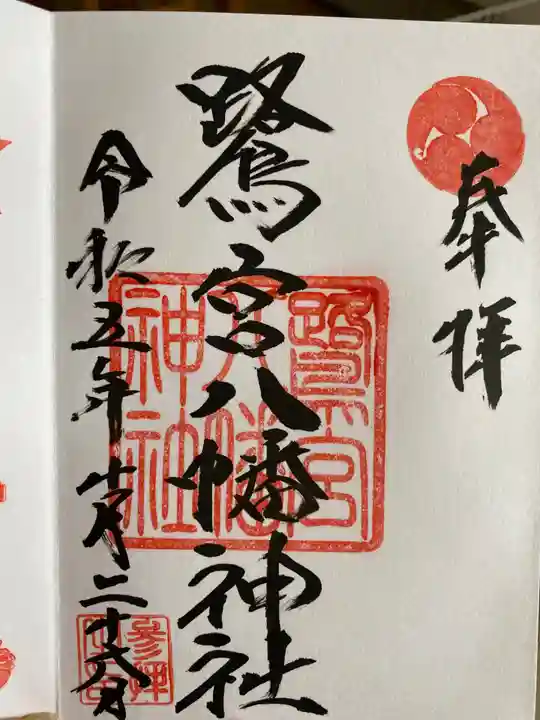 奉拝
鷺宮八幡神社
令和五年十一月二十六日
鷺宮
八幡
神社